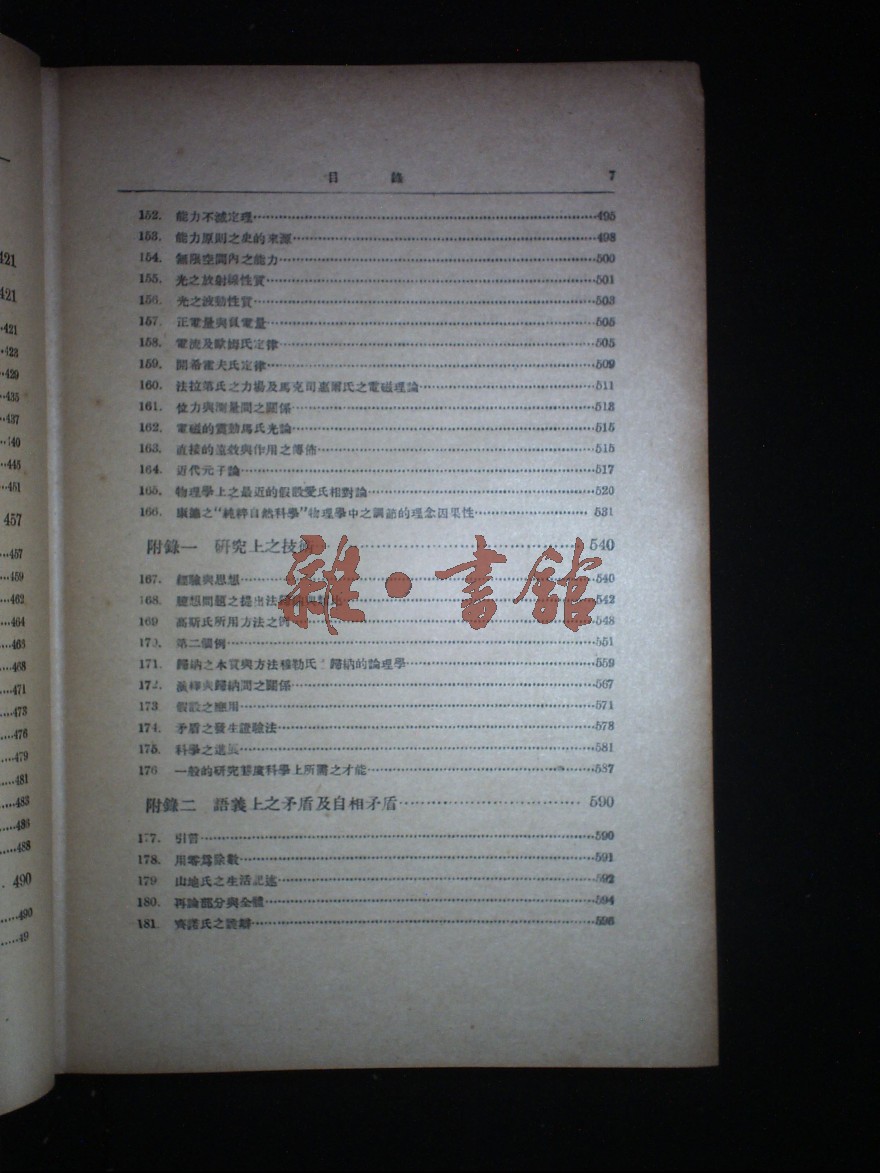 421
421
421
423
429
435
437
440
445
451
457
457
459
462
464
465
468
471
473
476
479
481
483
485
488
490
490
49
目 錄 7
152. 能力不滅定理 495
153. 能力原則之史的來源 498
154. 無限空間內之能力 500
155. 光之放射線性質 501
156. 光之波動性質 503
157. 正電量與負電量 505
158. 電流及歐姆氏定律 505
159. 開希霍夫氏定律 509
160. 法拉第氏之力場及馬克司惠爾氏之電磁理論 511
161. 位力與測量間之關係 513
162. 電磁的震動馬氏光論 515
163. 直接的遠效與作用之傳佈 515
164. 近代元子論 517
165. 物理學上之最近的假設愛氏相對論 520
166. 康德之“純粹自然科學”物理學中之調節的理念因果性 531
附錄一 研究上之技術 540
167. 經驗與思想 540
168. 臆想問題之提出法歸納與類比 542
169 高斯氏所用方法之例 548
170. 第二個例 551
171. 歸納之本質與方法穆勒氏 歸納的論理學 559
172. 演繹與歸納間之關係 567
173 假設之應用 571
174. 矛盾之發生證驗法 578
175. 科學之進展 581
176 一般的研究藝術科學上所需之才能 587
附錄二 語義上之矛盾及自相矛盾 590
177. 引言 590
178. 用零爲除數 591
179 山地氏之生活記述 592
180. 再論部分與全體 594
181. 齊諾氏之詭辯 596
雜·書館